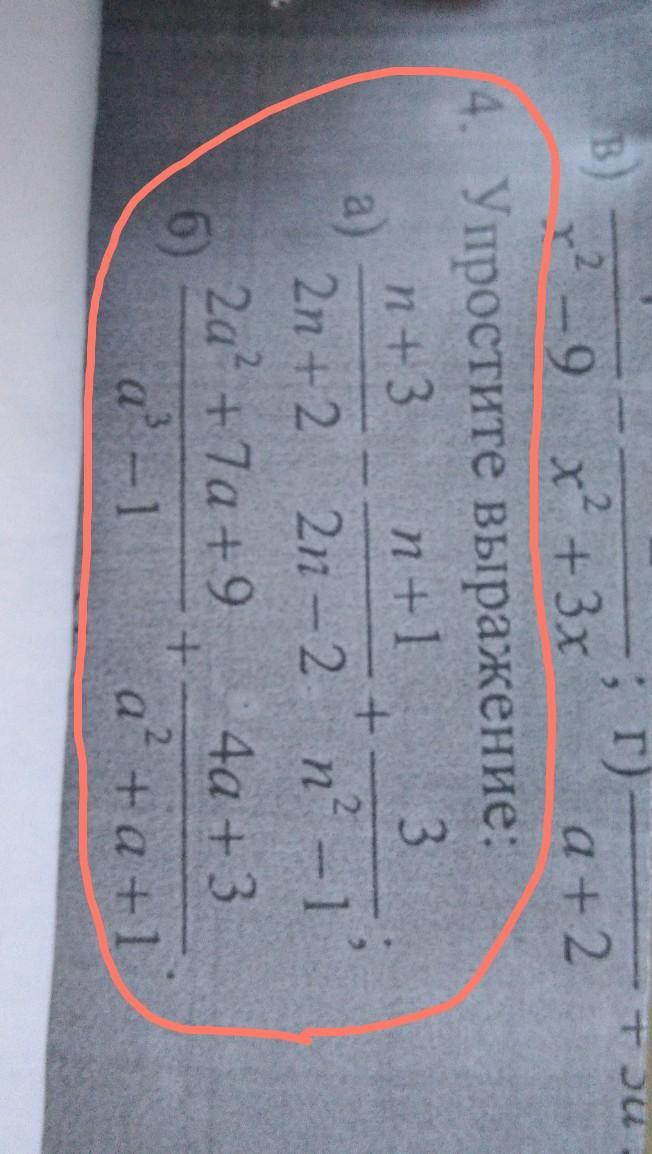 в) x² − 9 − x² + 3x ; г) a + 2
4. Упростите выражение:
а) (n + 3)/(2n + 2) − (n + 1)/(2n − 2) + 3/(n² − 1);
б) (2a² + 7a + 9)/(a³ − 1) + (4a + 3)/(a² + a + 1).